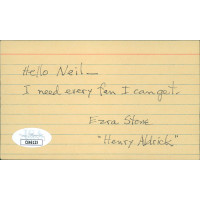 Hello Neil—
I need every fan I can get.
Ezra Stone
"Henry Aldrich"
JSA